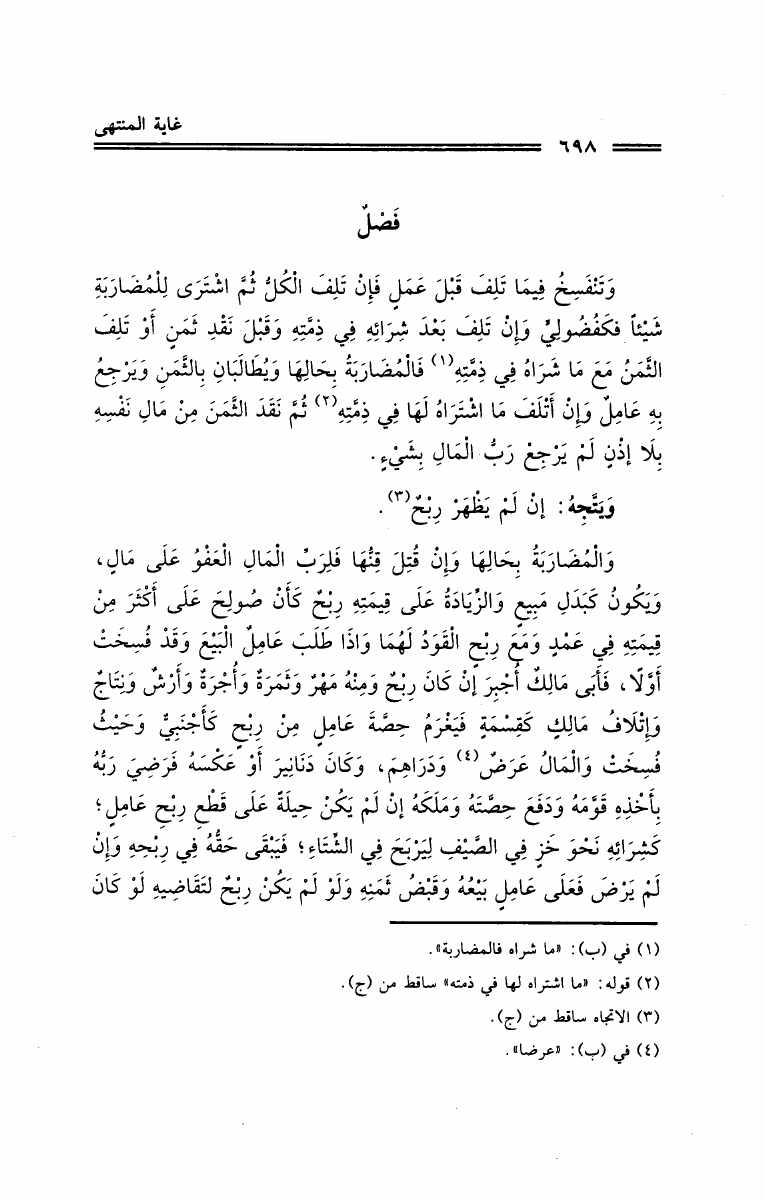 غاية المنتهى
٦٩٨
فَصْلٌ
وَتَنْفَسِخُ فِيمَا تَلِفَ قَبْلَ عَمَلٍ فَإِنْ تَلِفَ الْكُلُّ ثُمَّ اشْتَرَى لِلْمُضَارَبَةِ
شَيْئاً فَكَفُضُولِيٍّ وَإِنْ تَلِفَ بَعْدَ شِرَائِهِ فِي ذِمَّتِهِ وَقَبْلَ نَقْدِ ثَمَنٍ أَوْ تَلِفَ
الثَّمَنُ مَعَ مَا شَرَاهُ فِي ذِمَّتِهِ(١) فَالْمُضَارَبَةُ بِحَالِهَا وَيُطَالَبَانِ بِالثَّمَنِ وَيَرْجِعُ
بِهِ عَامِلٌ وَإِنْ أَتْلَفَ مَا اشْتَرَاهُ لَهَا فِي ذِمَّتِهِ(٢) ثُمَّ نَقَدَ الثَّمَنَ مِنْ مَالِ نَفْسِهِ
بِلَا إِذْنٍ لَمْ يَرْجِعْ رَبُّ الْمَالِ بِشَيْءٍ.
وَيَتَّجِهُ: إِنْ لَمْ يَظْهَرْ رِبْحٌ(٣).
وَالْمُضَارَبَةُ بِحَالِهَا وَإِنْ قُتِلَ قِنُّهَا فَلِرَبِّ الْمَالِ الْعَفْوُ عَلَى مَالٍ،
وَيَكُونُ كَبَدَلِ مَبِيعٍ وَالزِّيَادَةُ عَلَى قِيمَتِهِ رِبْحٌ كَأَنْ صُولِحَ عَلَى أَكْثَرَ مِنْ
قِيمَتِهِ فِي عَمْدٍ وَمَعَ رِبْحٍ الْقَوَدُ لَهُمَا وَإِذَا طَلَبَ عَامِلٌ الْبَيْعَ وَقَدْ فُسِخَتْ
أَوَّلًا، فَأَبَى مَالِكٌ أُجْبِرَ إِنْ كَانَ رِبْحٌ وَمِنْهُ مَهْرٌ وَثَمَرَةٌ وَأُجْرَةٌ وَأَرْشٌ وَنِتَاجٌ
وَإِتْلَافُ مَالِكٍ كَقِسْمَةٍ فَيَغْرَمُ حِصَّةَ عَامِلٍ مِنْ رِبْحٍ كَأَجْنَبِيٍّ وَحَيْثُ
فُسِخَتْ وَالْمَالُ عَرَضٌ(٤) وَدَرَاهِمَ، وَكَانَ دَنَانِيرَ أَوْ عَكْسَهُ فَرَضِيَ رَبُّهُ
بِأَخْذِهِ قَوَّمَهُ وَدَفَعَ حِصَّتَهُ وَمَلَكَهُ إِنْ لَمْ يَكُنْ حِيلَةً عَلَى قَطْعِ رِبْحِ عَامِلٍ؛
كَشِرَائِهِ نَحْوَ خَزٍ فِي الصَّيْفِ لِيَرْبَحَ فِي الشِّتَاءِ؛ فَيَبْقَى حَقُّهُ فِي رِبْحِهِ وَإِنْ
لَمْ يَرْضَ فَعَلَى عَامِلٍ بَيْعُهُ وَقَبْضُ ثَمَنِهِ وَلَوْ لَمْ يَكُنْ رِبْحٌ لتَقَاضِيهِ لَوْ كَانَ
(١) في (ب): «ما شراه فالمضاربة».
(٢) قوله: «ما اشتراه لها في ذمته» ساقط من (ج).
(٣) الاتجاه ساقط من (ج).
(٤) في (ب): «عرضا».